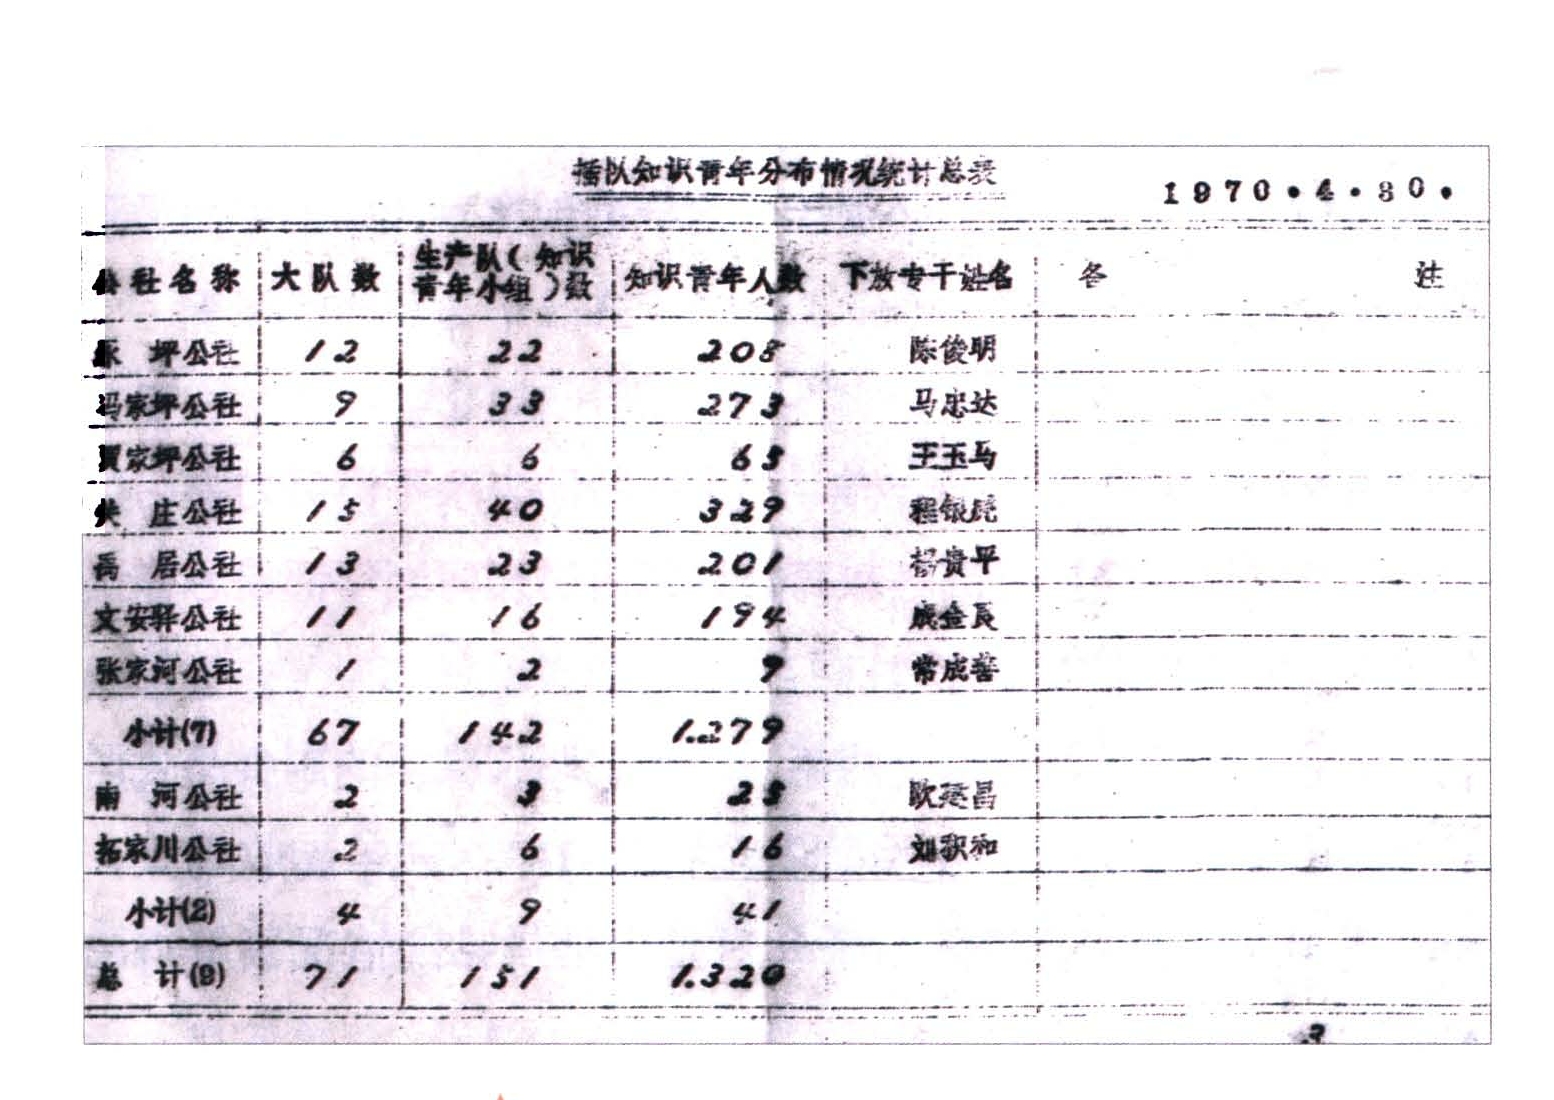 插队知识青年分布情况统计总表
1970.4.30.
公社名称 大队数 生产队(知识青年小组)数 知识青年人数 下放专干姓名 备 注
永 坪公社 12 22 208 陈俊明
冯家坪公社 9 33 273 马忠达
贾家坪公社 6 6 65 王玉马
关 庄公社 15 40 329 程银虎
禹 居公社 13 23 201 贵平
文安驿公社 11 16 194
张家河公社 1 2 9 常成善
小计(7) 67 142 1.279
南 河公社 2 3 25 欧延昌
拓家川公社 2 6 16 刘积和
小计(2) 4 9 41
总 计(9) 71 151 1.320
3